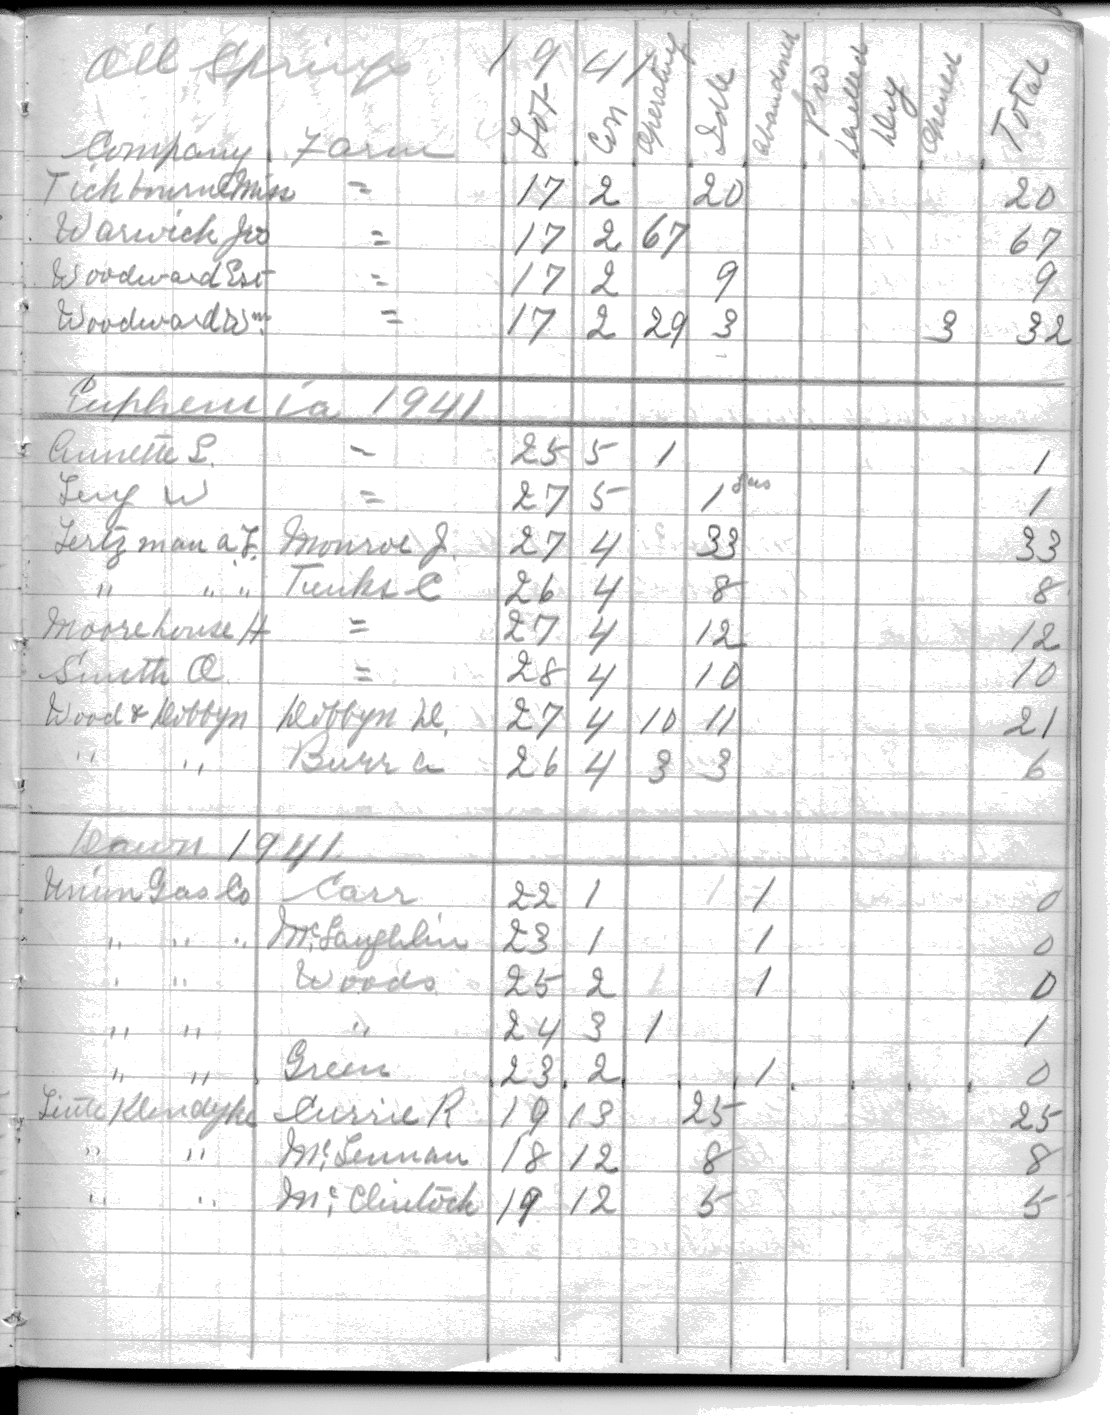 Oil Springs 1941
Company Farm Lot Con Operating Idle Abandoned Pro Drilled Dry Opened Total
Tichbourne Miss = 17 2 20 20
Warwick Jno = 17 2 67 67
Woodward Est = 17 2 9 9
Woodward Wm = 17 2 29 3 3 32
Euphemia 1941
Annette L. = 25 5 1 1
W = 27 5 1 gas 1
Lertzman A.F. Monroe J. 27 4 33 33
" " " Tunks C 26 4 8 8
Moorehouse H = 27 4 12 12
Smith O. = 28 4 10 10
Wood & Dobbyn Dobbyn D. 27 4 10 11 21
" " Burr A 26 4 3 3 6
Dawn 1941
Union Gas Co Carr 22 1 1 1 0
" " " McLaughlin 23 1 1 0
" " Woods 25 2 1 1 0
" " " 24 3 1 1
" " Green 23 2 1 0
Little Klondyke Currie R 19 13 25 25
" " McLennan 18 12 8 8
" " McClintock 19 12 5 5